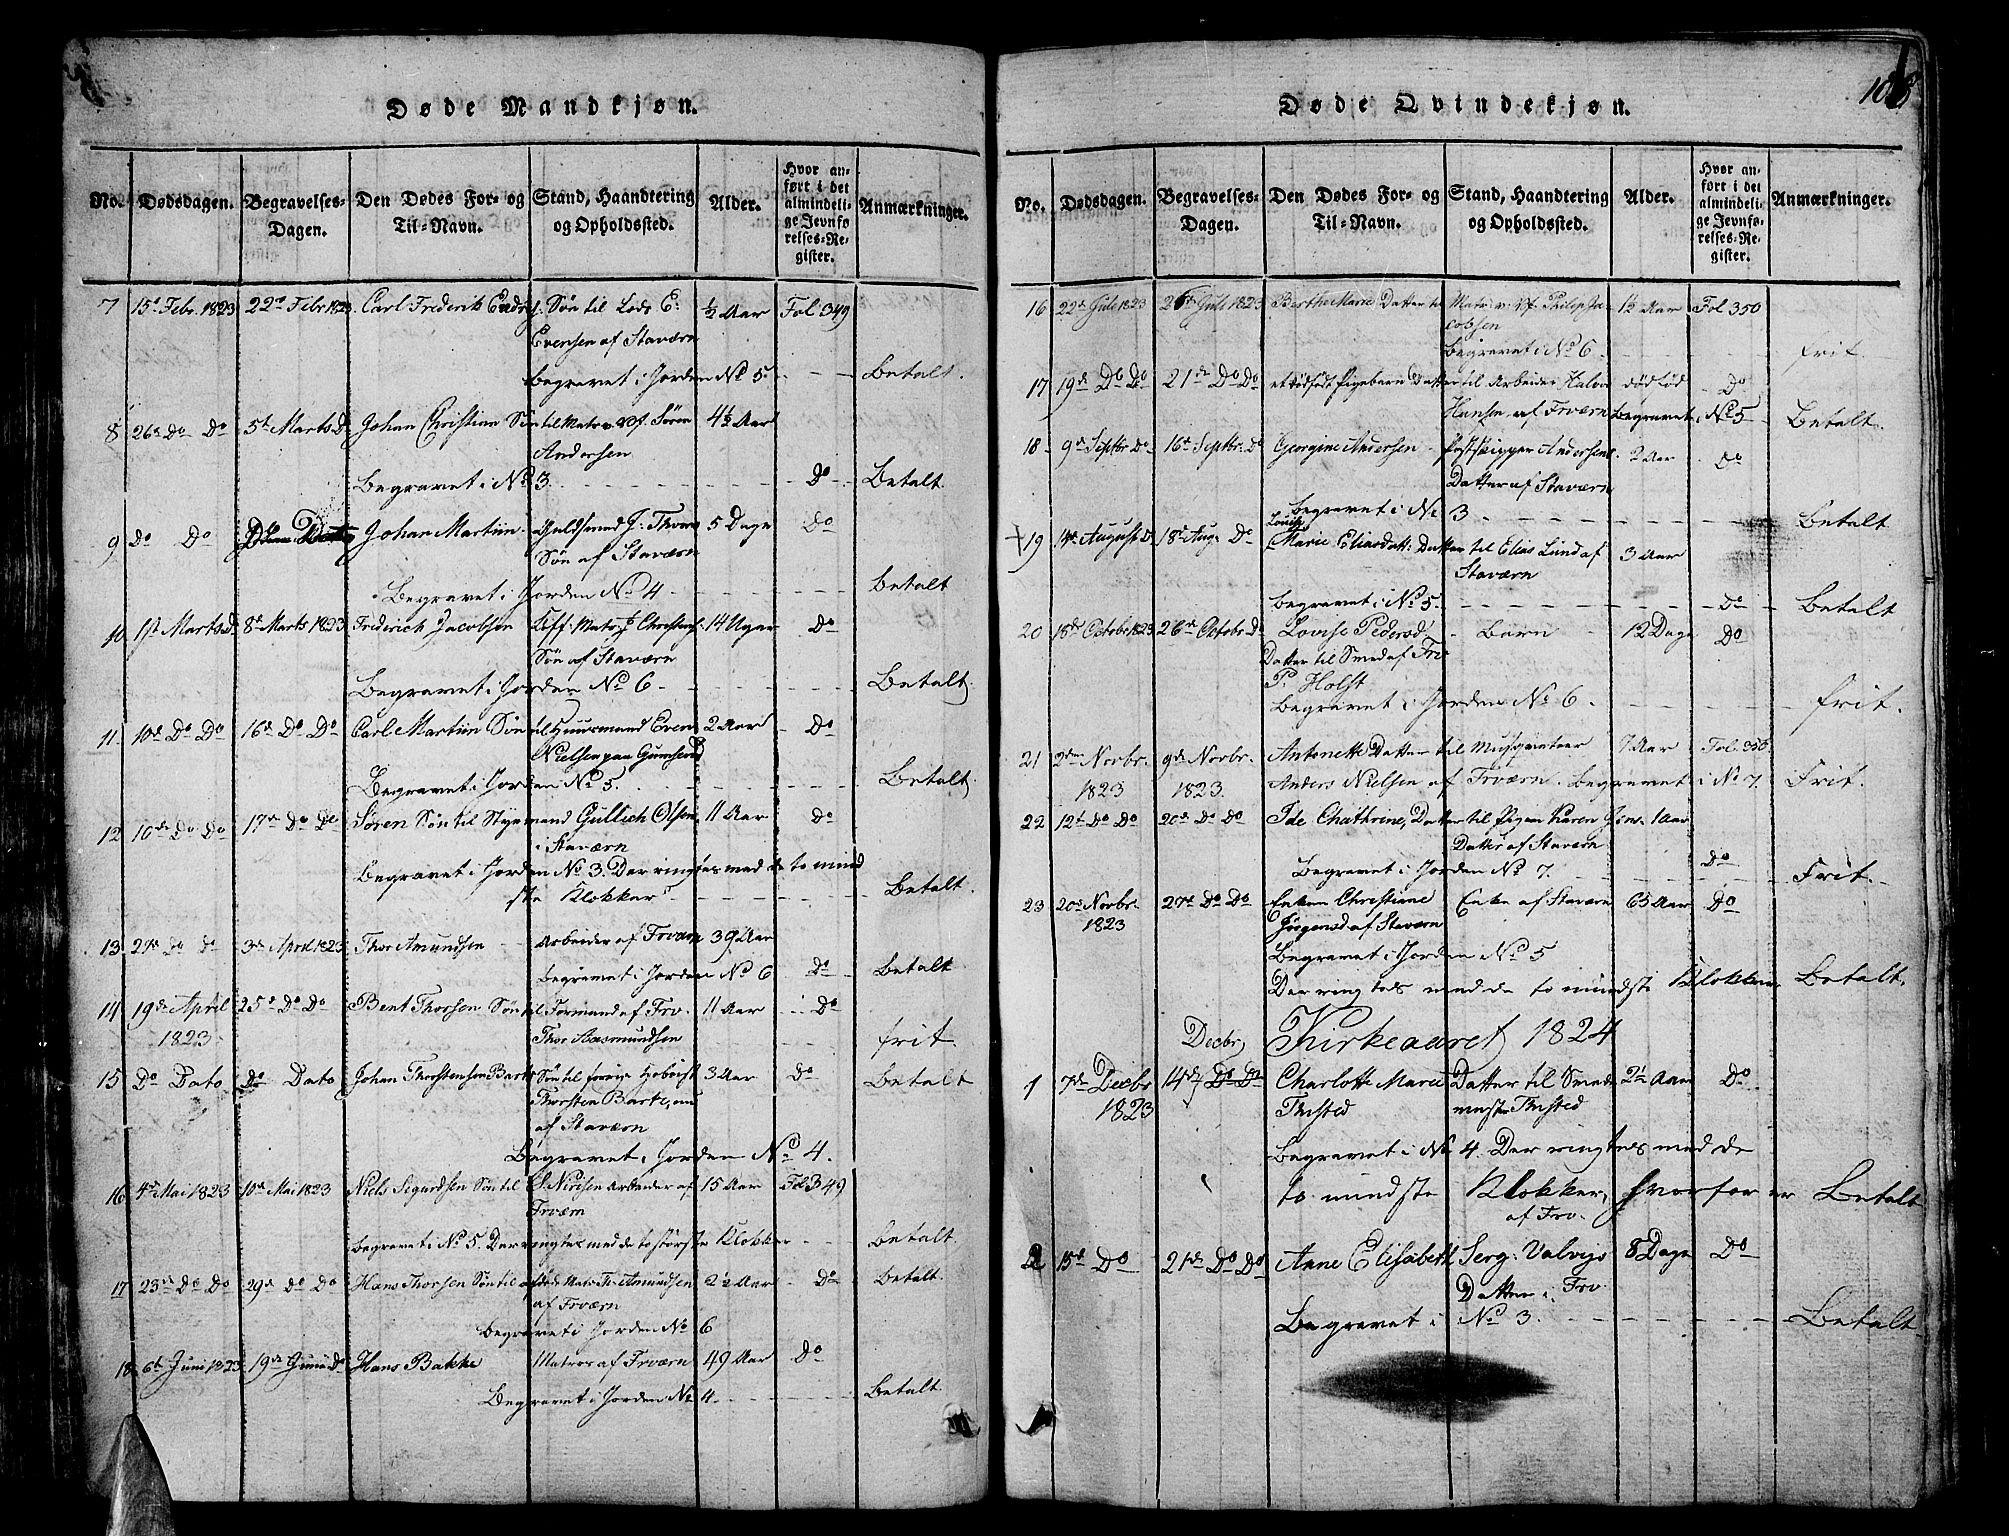 Døde Mandkjøn.
No. Dødsdagen. Begravelses-Dagen. Den Dødes For- og Til-Navn. Stand, Haandtering og Opholdssted. Alder. Hvor anført i det almindelige Jevnførelses-Register. Anmærkninger.
7 15d Febr. 1823 22de Febr 1823 Carl Frederik Søn til Lods E: ½ Aar Fol 349
Evensen af Staværn
Begravet i Jorden No 5 - - - Betalt.
8 26de Do Do 5te Marts Do Johan Christian Søn til Matr. v. Vf. Søren 4½ Aar
Andersen
Begravet i No 3 - - - Do Betalt
9 Do Do Johan Martiin Guldsmed J: 5 Dage Do
Søn af Staværn
Begravet i Jorden No 4 - - - Betalt
10 1st Marts Do 8de Marts 1823 Frederick Jacobsen Matr: Christens 14 Uger Do
Søn af Staværn
Begravet i Jorden No 6 - - - Betalt
11 10de Do Do 16de Do Do Carl Martiin Søn til Huusmand Even 2 Aar Do
Nielsen paa
Begravet i Jorden No 5. - - - Betalt
12 10de Do Do 17de Do Do Søren Søn til Styrmand Gullich Olsen 11 Aar Do
i Staværn
Begravet i Jorden No 3. Der ringtes med de to mind
ste Klokker - - - Betalt.
13 27de Do Do 3de April 1823 Thor Amundsen Arbeider af Frværn 39 Aar
Begravet i Jorden No 6 - Do - Betalt
14 19de April 25de Do Do Bent Thorsen Søn til Formand af Frv. 11 Aar Do
1823 Thor Aasmundsen - - - frit.
15 Do Dato Do Dato Johan Thorstensen Barth Søn til forrige Hoboist 3 Aar Do Betalt
Thorsten Barth, nu
af Staværn
Begravet i Jorden No 4.
16 4de Mai 1823 10de Mai 1823 Niels Sigurdsen Søn til S. Nielsen Arbeider af 15 Aar Fol 349
Frværn
Begravet i No 5. Der ringtes med de to störste Klokker - - Betalt.
17 23de Do Do 29de Do Do Hans Thorsen Søn til Matr T. Amundsen 2½ Aar Do Betalt
af Frværn
Begravet i Jorden No 6
18 6te Juni 1823 19de Juni Do Hans Bakke Matros af Frværn 49 Aar Do
Begravet i Jorden No 4 - - - Betalt
Døde Qvindekjøn.
108
No. Dødsdagen. Begravelses-Dagen. Den Dødes For- og Til-Navn. Stand, Haandtering og Opholdssted. Alder. Hvor anført i det almindelige Jevnførelses-Register. Anmærkninger.
16 22de Juli 1823 26de Juli 1823 Berthe Marie Datter til Matr: v. Vf. Philip Ja 1½ Aar Fol 350
cobsen
Begravet i No 6 - - - frit.
17 19de Do Do 21de Do Do et dödfödt Pigebarn Datter til Arbeider Halvor dødfød Do
Hansen af Frværn Begravet i No 5 Betalt.
18 9de Septbr Do 16de Septbr. Do Georgine Andersen - Postskipper Andersens 2 Aar Do
Datter af Staværn
Begravet i No 3 - - - Betalt
Lovise
19 14de August Do 18de Aug: Do Marie Eliasdatt: Datter til Elias Lund af 3 Aar
Staværn
Begravet i No 5 - - - Do Betalt
20 18de Octobr 1823 26de Octobr. Do Lovise Pedersd: - Barn - 12 Dage Do
Datter til Smed af Frv
P. Holst
Begravet i Jorden No 6 - - - frit.
21 2den Novbr. 9de Novbr. Antonette Datter til Musqueteer 7 Aar Fol. 350
1823 1823. Anders Nielsen af Frværn. Begravet i No 7. Frit.
22 12te Do Do 20de Do Do Ide Chathrine, Datter til Pigen Karen Jens- 1 Aar
Datter af Staværn
Begravet i Jorden No 7. - - - Do Frit.
23 20de Novbr. 27de Do Do Enken Christiane Enke af Staværn 63 Aar Do
1823 Jörgensd af Staværn
Begravet i Jorden No 5
Der ringtes med de to mindste Klokker Betalt.
Decbr Kirkeaaret 1824
1 7de Decbr 14de Do Do Charlotte Marie Datter til Smede 2½ Aar Do
1823 Thisted mester Thisted
Begravet i No 4. Der ringtes med de
to mindste Klokker, hvorfor er Betalt
af Frv.
2 15de Do 21de Do Do Anne Elisabeth Serg: 8 Dage Do
Datter i Frv
Begravet i No 3. - - - Betalt